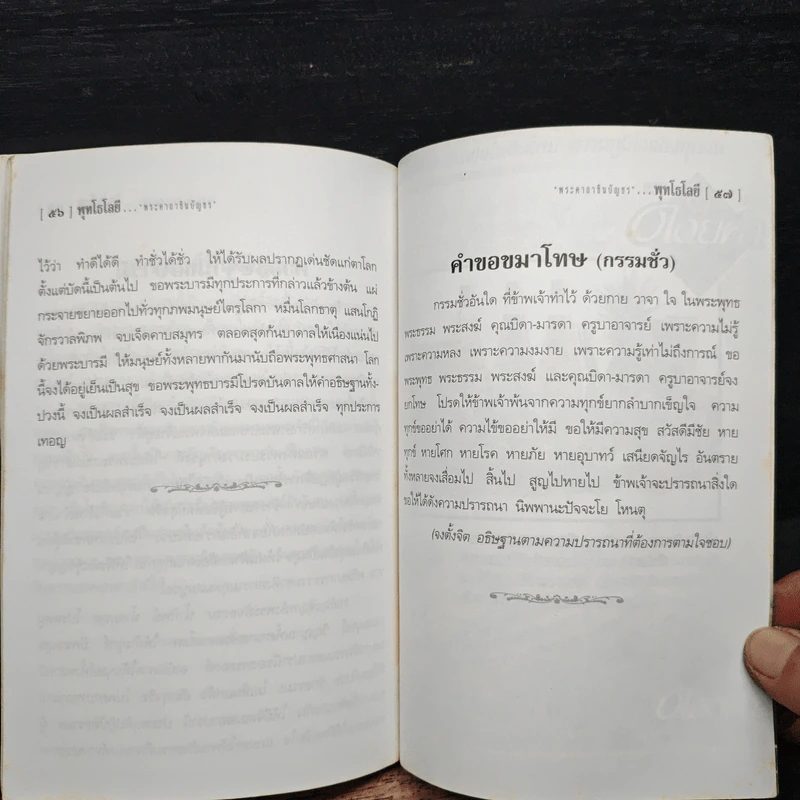 [ ๕๖ ] พุทโธโลยี ... "พระคาถาชินบัญชร"
ไว้ว่า ทำดีได้ดี ทำชั่วได้ชั่ว ให้ได้รับผลปรากฏเด่นชัดแก่ตาโลก
ตั้งแต่บัดนี้เป็นต้นไป ขอพระบารมีทุกประการที่กล่าวแล้วข้างต้น แผ่
กระจายขยายออกไปทั่วทุกภพมนุษย์ไตรโลกา หมื่นโลกธาตุ แสนโกฏิ
จักรวาลพิภพ จบเจ็ดคาบสมุทร ตลอดสุดก้นบาดาลให้เนืองแน่นไป
ด้วยพระบารมี ให้มนุษย์ทั้งหลายพากันมานับถือพระพุทธศาสนา โลก
นี้จงได้อยู่เย็นเป็นสุข ขอพระพุทธบารมีโปรดบันดาลให้คำอธิษฐานทั้ง-
ปวงนี้ จงเป็นผลสำเร็จ จงเป็นผลสำเร็จ จงเป็นผลสำเร็จ ทุกประการ
เทอญ
"พระคาถาชินบัญชร" ... พุทโธโลยี [ ๕๗ ]
คำขอขมาโทษ (กรรมชั่ว)
กรรมชั่วอันใด ที่ข้าพเจ้าทำไว้ ด้วยกาย วาจา ใจ ในพระพุทธ
พระธรรม พระสงฆ์ คุณบิดา-มารดา ครูบาอาจารย์ เพราะความไม่รู้
เพราะความหลง เพราะความงมงาย เพราะความรู้เท่าไม่ถึงการณ์ ขอ
พระพุทธ พระธรรม พระสงฆ์ และคุณบิดา-มารดา ครูบาอาจารย์จง
ยกโทษ โปรดให้ข้าพเจ้าพ้นจากความทุกข์ยากลำบากเข็ญใจ ความ
ทุกข์ขออย่าได้ ความไข้ขออย่าให้มี ขอให้มีความสุข สวัสดีมีชัย หาย
ทุกข์ หายโศก หายโรค หายภัย หายอุบาทว์ เสนียดจัญไร อันตราย
ทั้งหลายจงเสื่อมไป สิ้นไป สูญไปหายไป ข้าพเจ้าจะปรารถนาสิ่งใด
ขอให้ได้ดังความปรารถนา นิพพานะปัจจะโย โหนตุ
(จงตั้งจิต อธิษฐานตามความปรารถนาที่ต้องการตามใจชอบ)